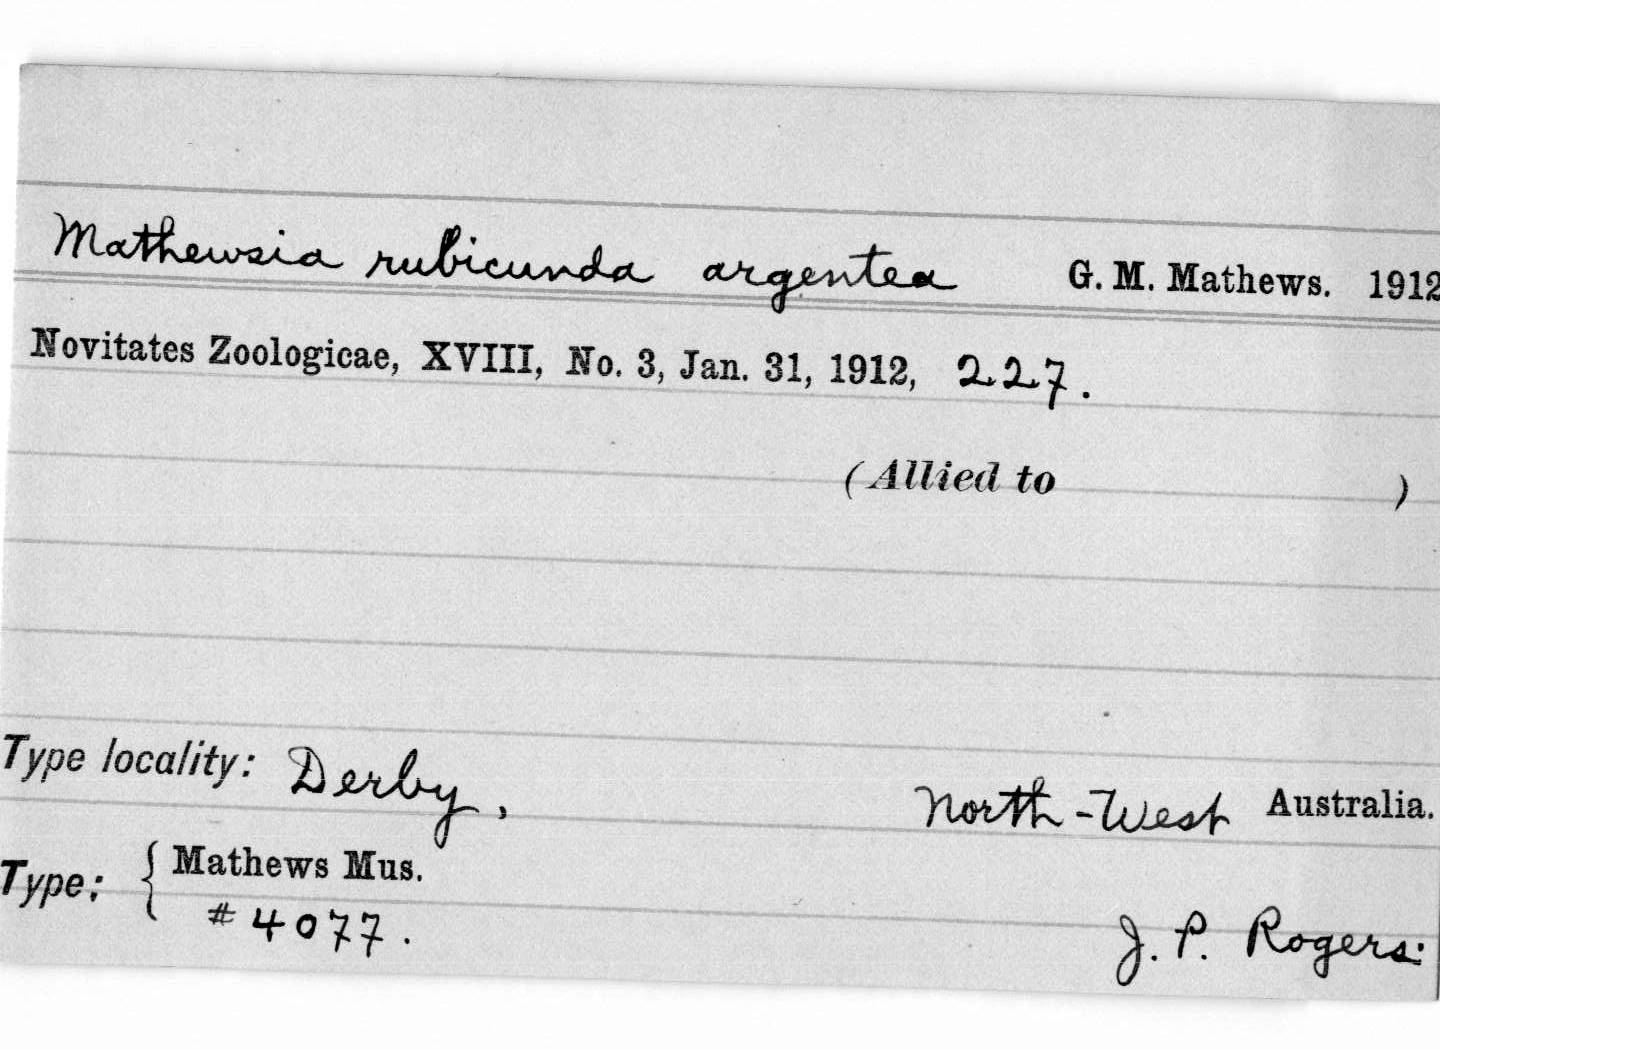 Mathewsia rubicunda argentea G. M. Mathews. 1912
Novitates Zoologicae, XVIII, No. 3, Jan. 31, 1912, 227.
(Allied to )
Type locality: Derby, North-West Australia.
Type: { Mathews Mus.
#4077. J. P. Rogers.